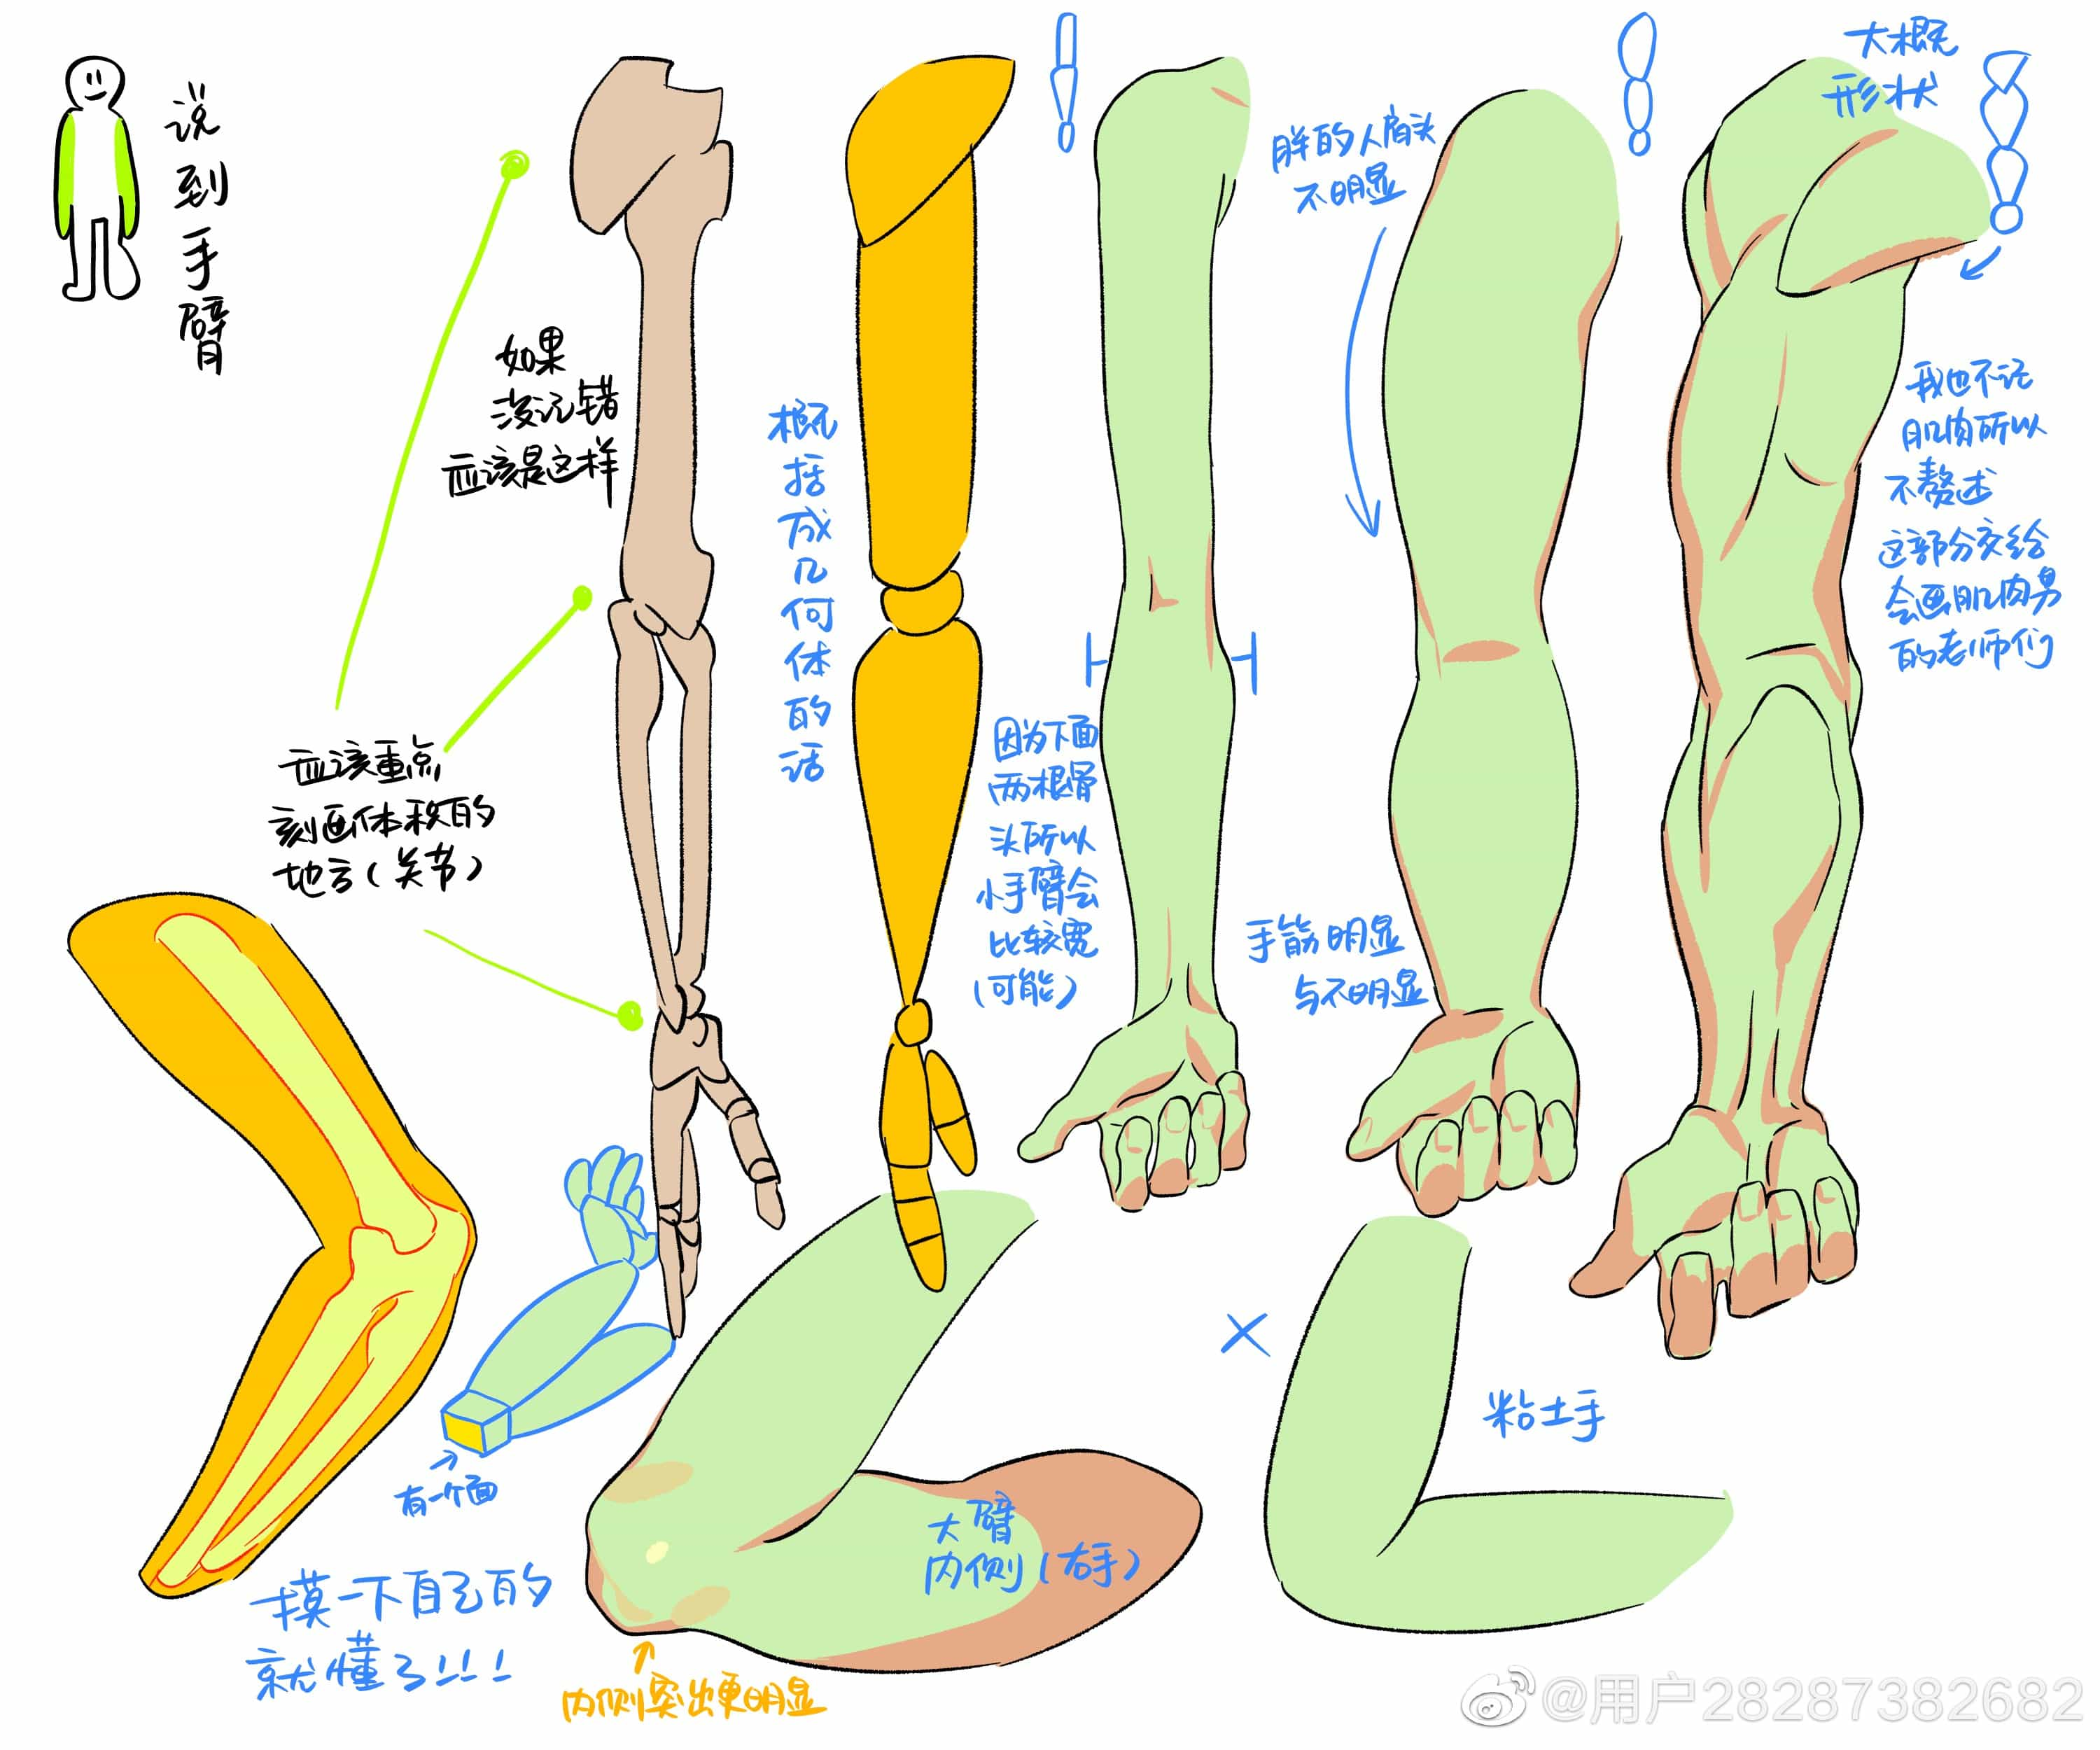 说到手臂
如果
没记错
应该是这样
应该重点
刻画体积的
地方(关节)
概括成几何体的话
因为下面
两根骨
头所以
小手臂会
比较宽
(可能)
胖的人肩头
不明显
手筋明显
与不明显
大概
形状
我也不记
肌肉所以
不赘述
这部分交给
会画肌肉男
的老师们
有一个面
摸一下自己的
就懂了!!!
大臂
内侧(右手)
内侧突出更明显
粘土手
@用户28287382682